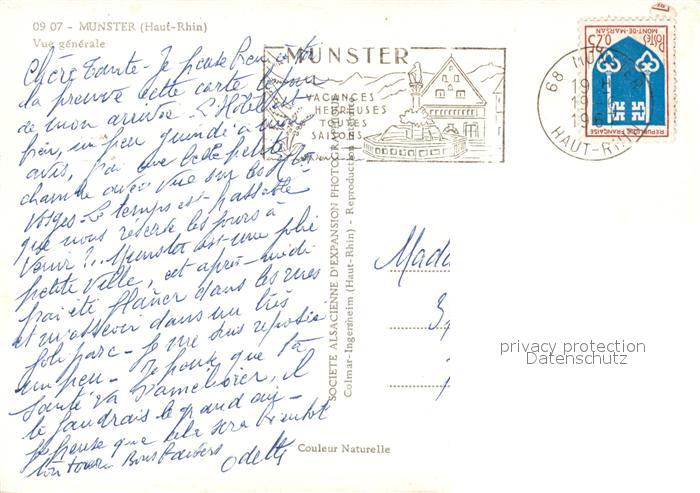 09 07 - MUNSTER (Haut-Rhin)
Vue générale
Chère Tante - Je pense
la preuve cette carte le jour
de mon arrivée. L'Hôtel est
bien, un peu à mon
avis, j'ai une belle petite
chambre avec vue sur les
Vosges - Le temps est passable
que nous réserve les jours à
venir ?.. Munster est une jolie
petite ville, cet après-midi
j'ai été flâner dans les rues
et m'asseoir dans un très
joli parc - Je me suis reposée
un peu - Je pense que ta
santé va s'améliorer, il
le faudrait le grand air
Je pense que cela sera bientôt
ton tour. Bons Baisers Odette
MUNSTER
VACANCES
HEUREUSES
TOUTES
SAISONS
68 MUNSTER
19 H
19
196
HAUT-RHIN
0,25
POSTES
MONT-DE-MARSAN
REPUBLIQUE FRANÇAISE
SOCIÉTÉ ALSACIENNE D'EXPANSION PHOTOGRAPHIQUE
Colmar-Ingersheim (Haut-Rhin) - Reproduction
Mada
privacy protection
Datenschutz
Couleur Naturelle